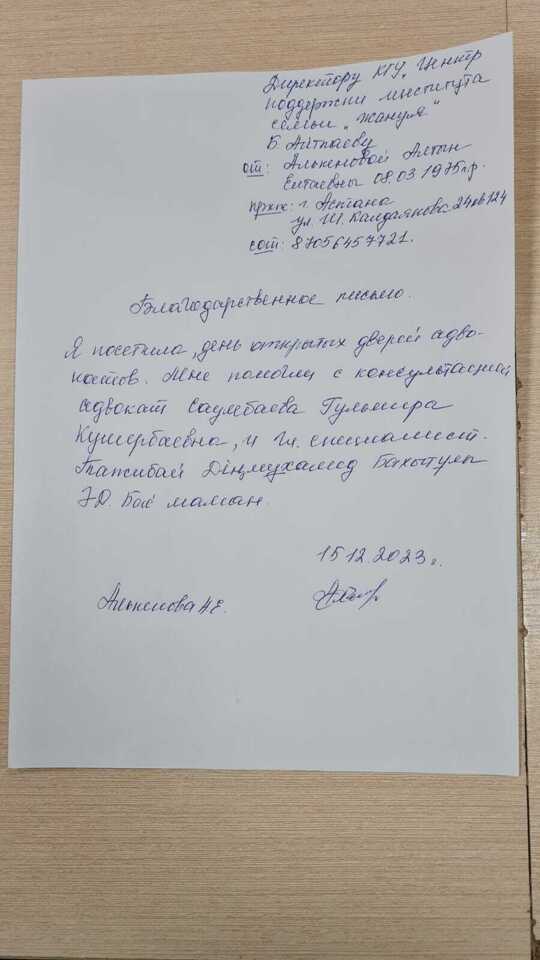 Директору КГУ „Центр
поддержки института
семьи „Жанұя“
Б Айтпаеву
от: Алькеновой Алтын
Ертаевны 08.03.1975г.р.
прож: г Астана
ул. Ш. Калдаякова 24кв124
сот: 87056457721.
Благодарственное письмо.
Я посетила „день открытых дверей адво-
катов. Мне помогли с консультацией
адвокат Саулебаева Гульмира
Кушербаевна, и гл. специалист.
Тажибай Дінмухамед Бахытулы
Бас маман.
15.12.2023г.
Алькенова АЕ.